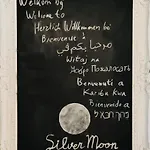 Welkom bij
Welcome to
Herzlich Willkommen bei
Bienvenue à
مرحبا بكم في
Witaj na
Добро Пожаловать
Benvenuti a
Karibu kwa
Bienvenido a
Silver Moon